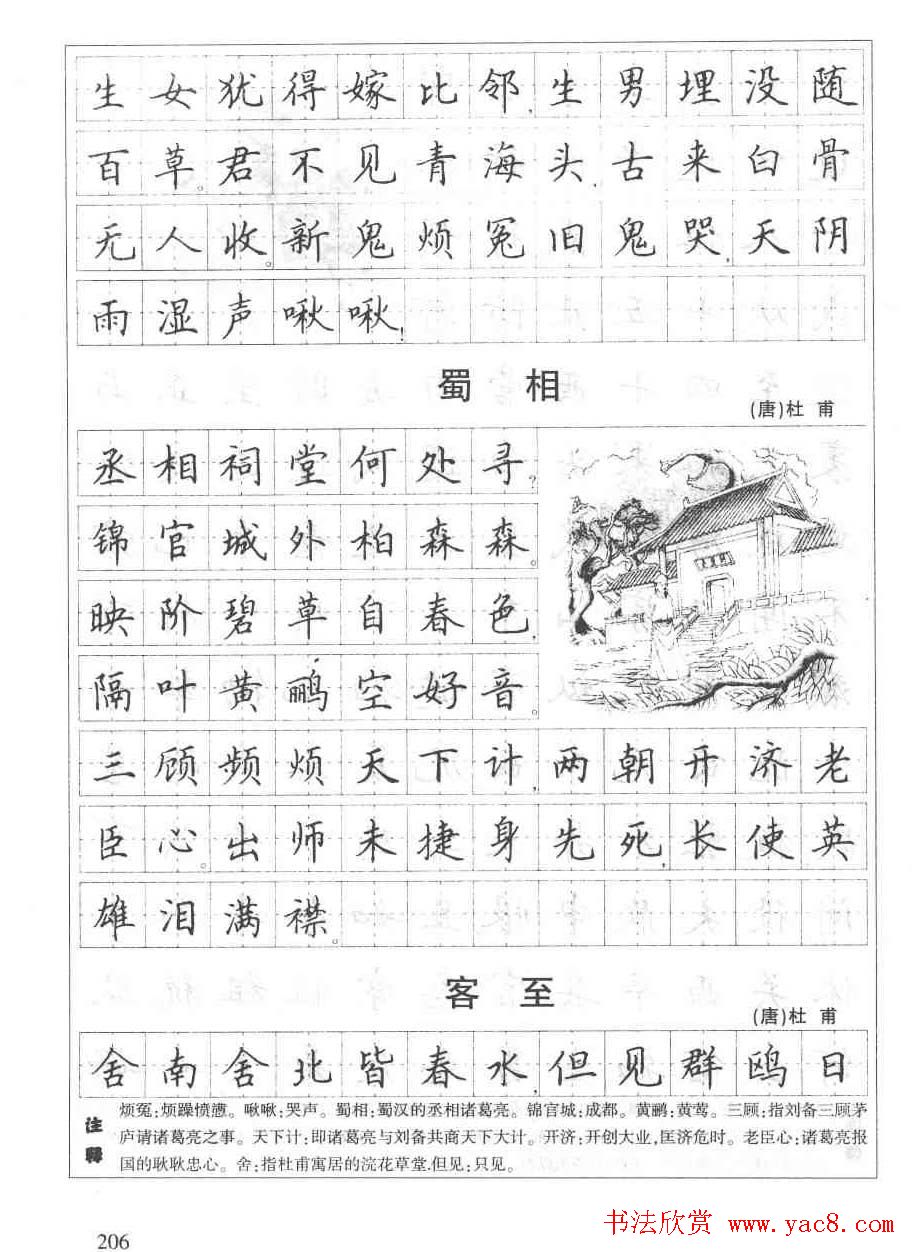 生女犹得嫁比邻,生男埋没随
百草。君不见青海头,古来白骨
无人收。新鬼烦冤旧鬼哭,天阴
雨湿声啾啾!
蜀 相
(唐)杜 甫
丞相祠堂何处寻?
锦官城外柏森森。
映阶碧草自春色,
隔叶黄鹂空好音。
三顾频烦天下计,两朝开济老
臣心。出师未捷身先死,长使英
雄泪满襟。
客 至
(唐)杜 甫
舍南舍北皆春水,但见群鸥日
注释
烦冤:烦躁愤懑。啾啾:哭声。蜀相:蜀汉的丞相诸葛亮。锦官城:成都。黄鹂:黄莺。三顾:指刘备三顾茅
庐请诸葛亮之事。天下计:即诸葛亮与刘备共商天下大计。开济:开创大业,匡济危时。老臣心:诸葛亮报
国的耿耿忠心。舍:指杜甫寓居的浣花草堂.但见:只见。
206
书法欣赏 www.yac8.com